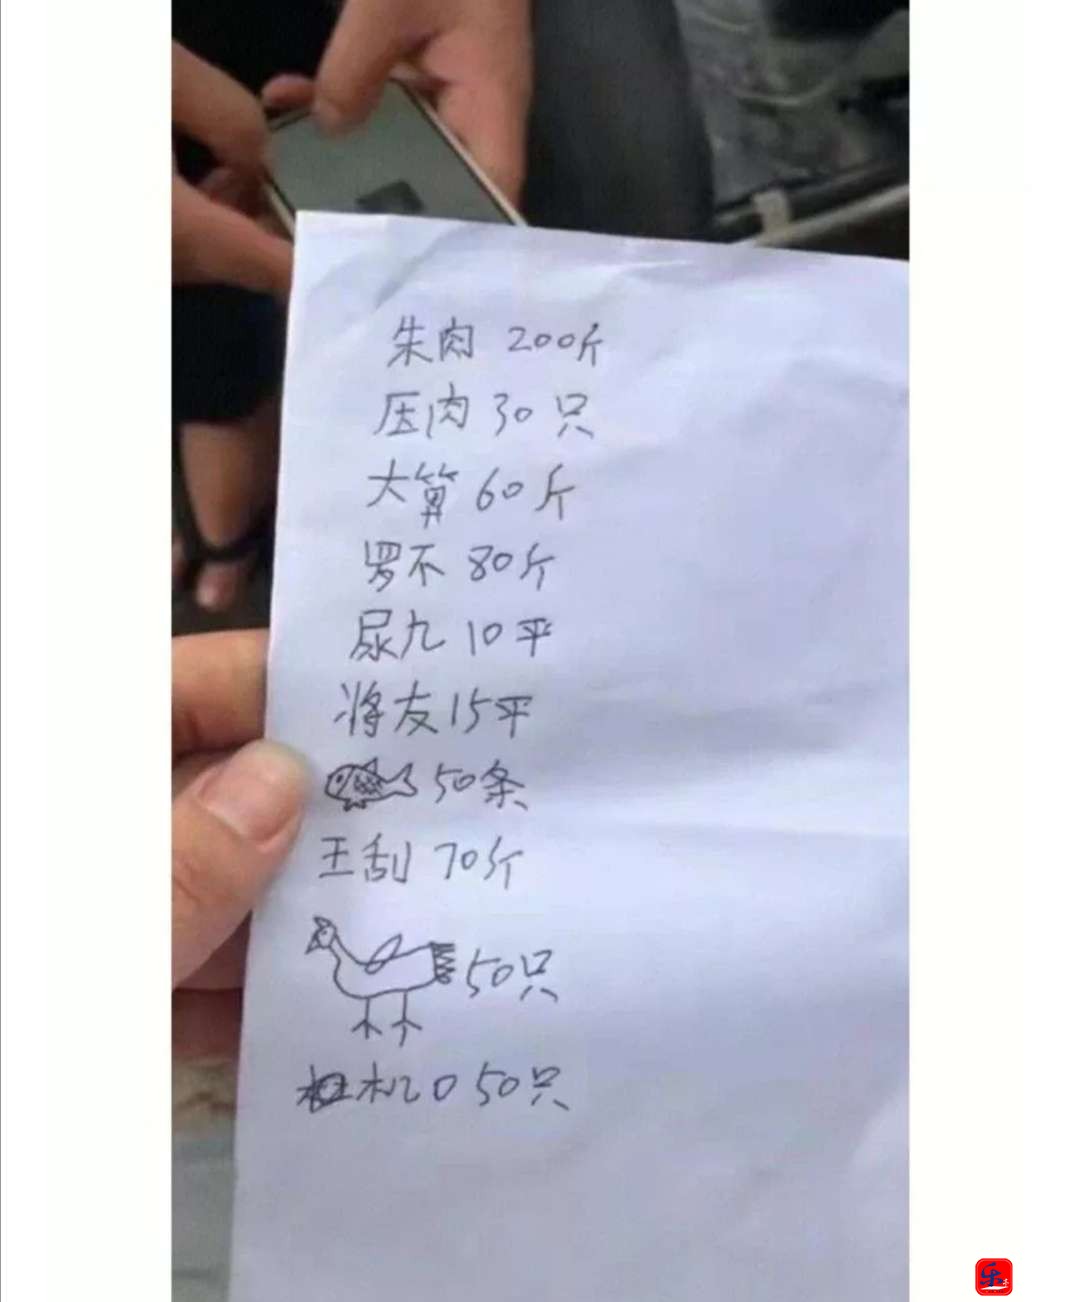 朱肉 200斤
压肉 30只
大算 60斤
罗不 80斤
尿九 10平
将友 15平
50条
王刮 70斤
50只
机0 50只
乐